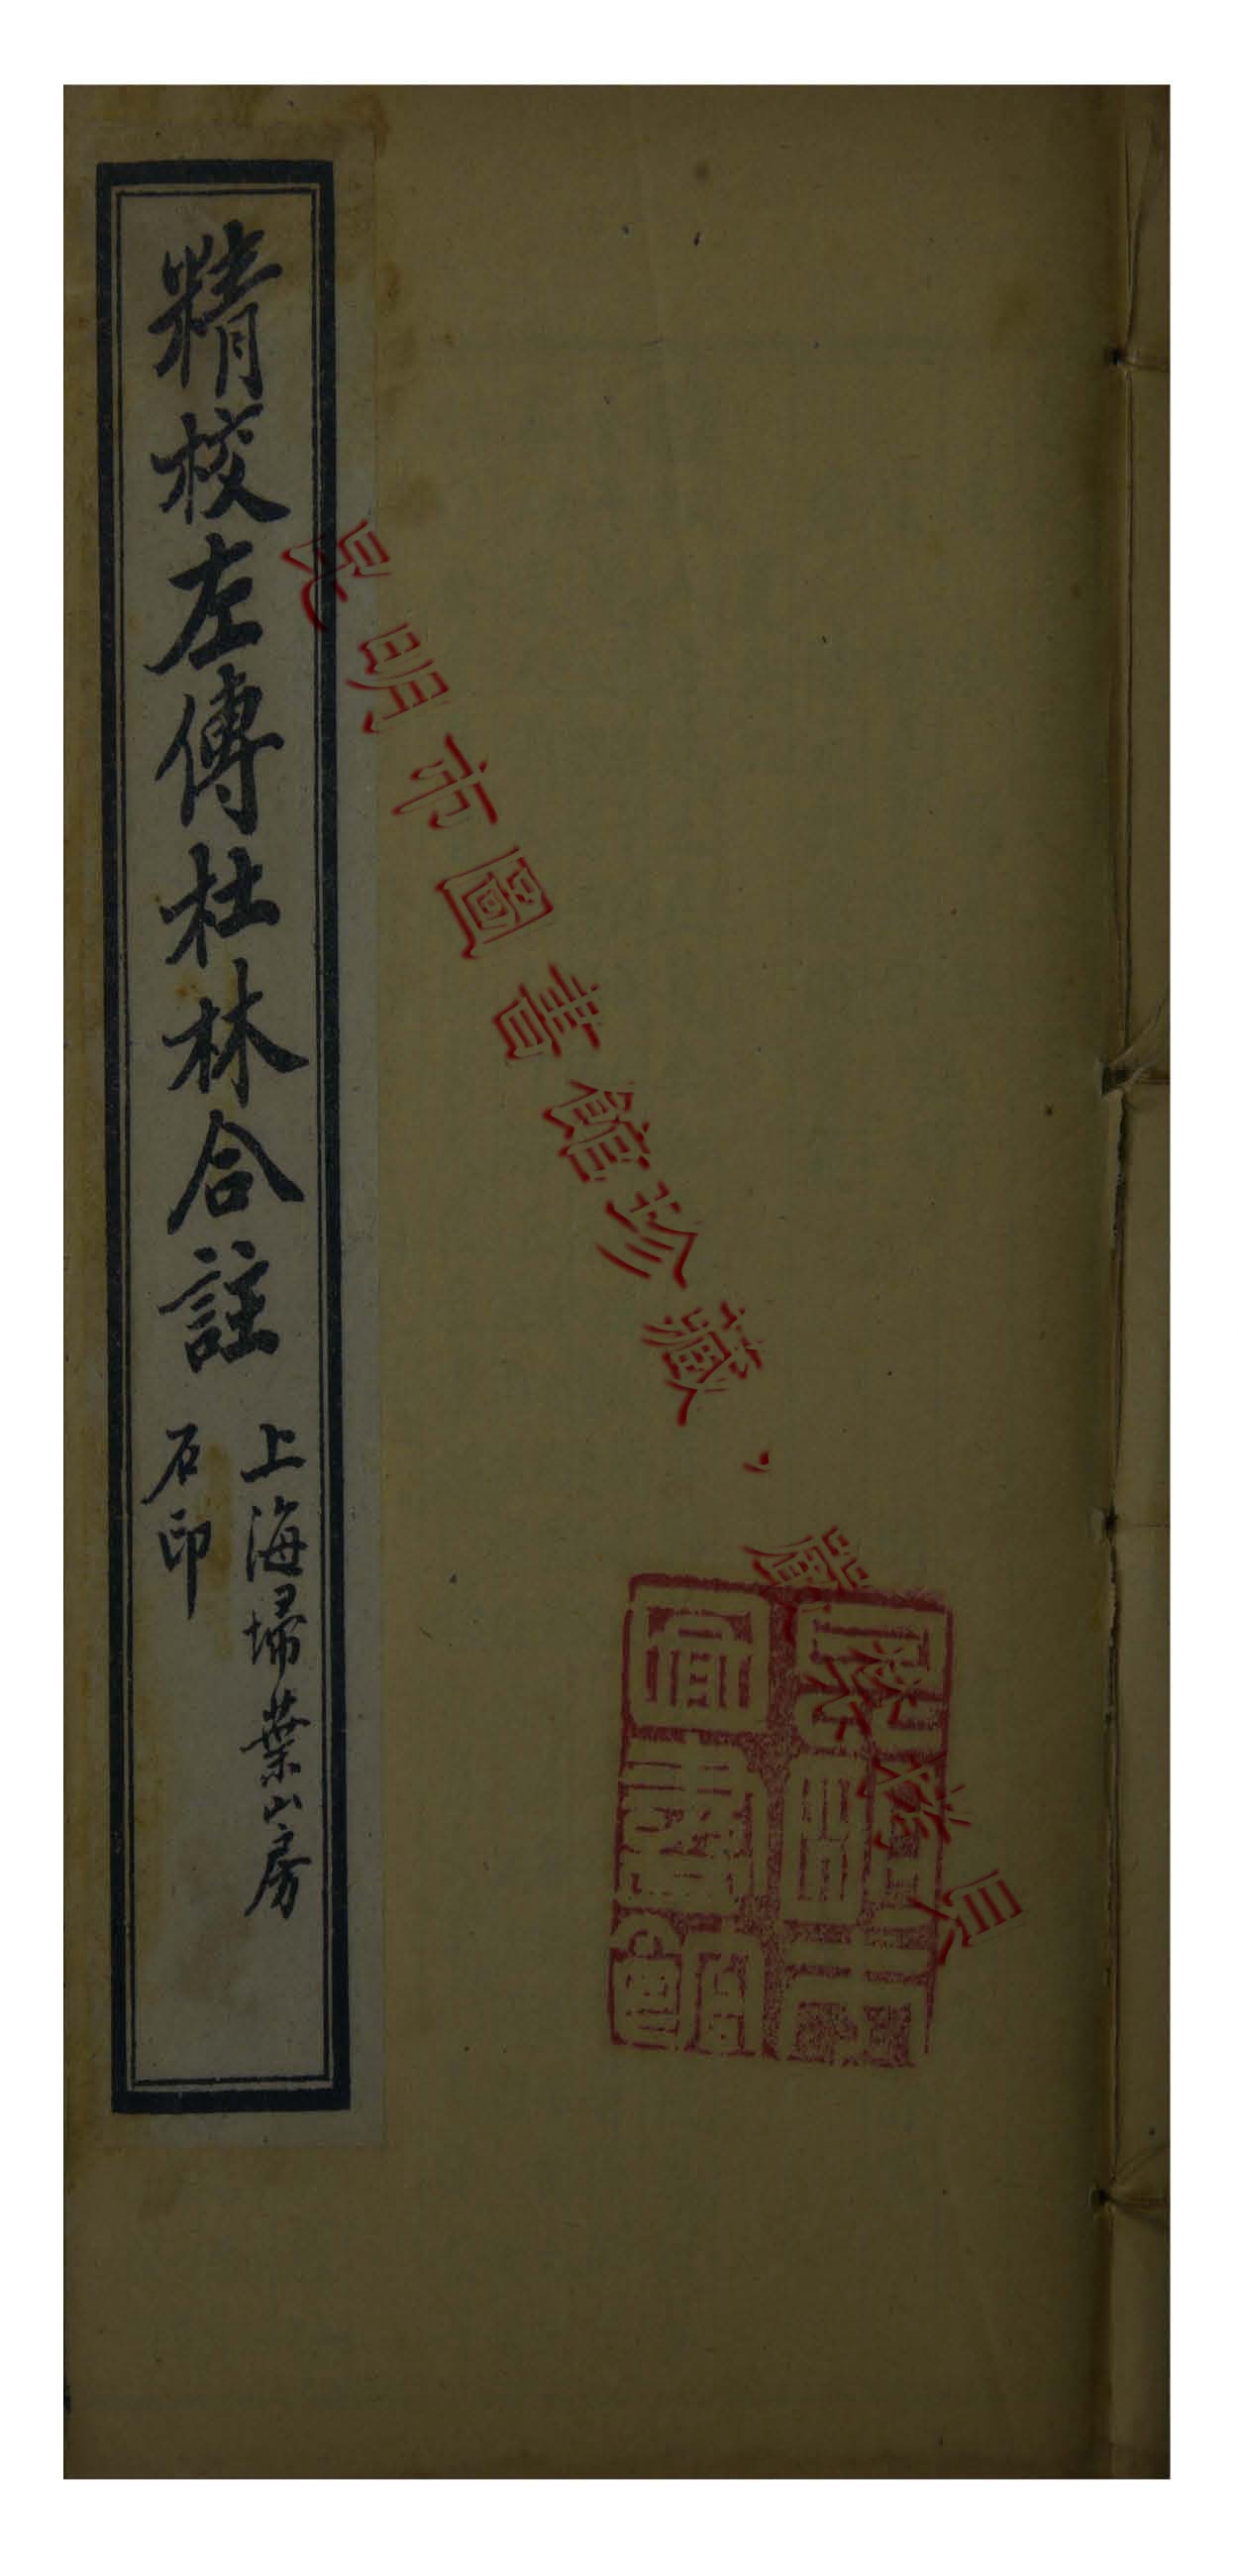 精校左傳杜林合註
上海埽葉山房
石印
昆明市圖書館珍藏，